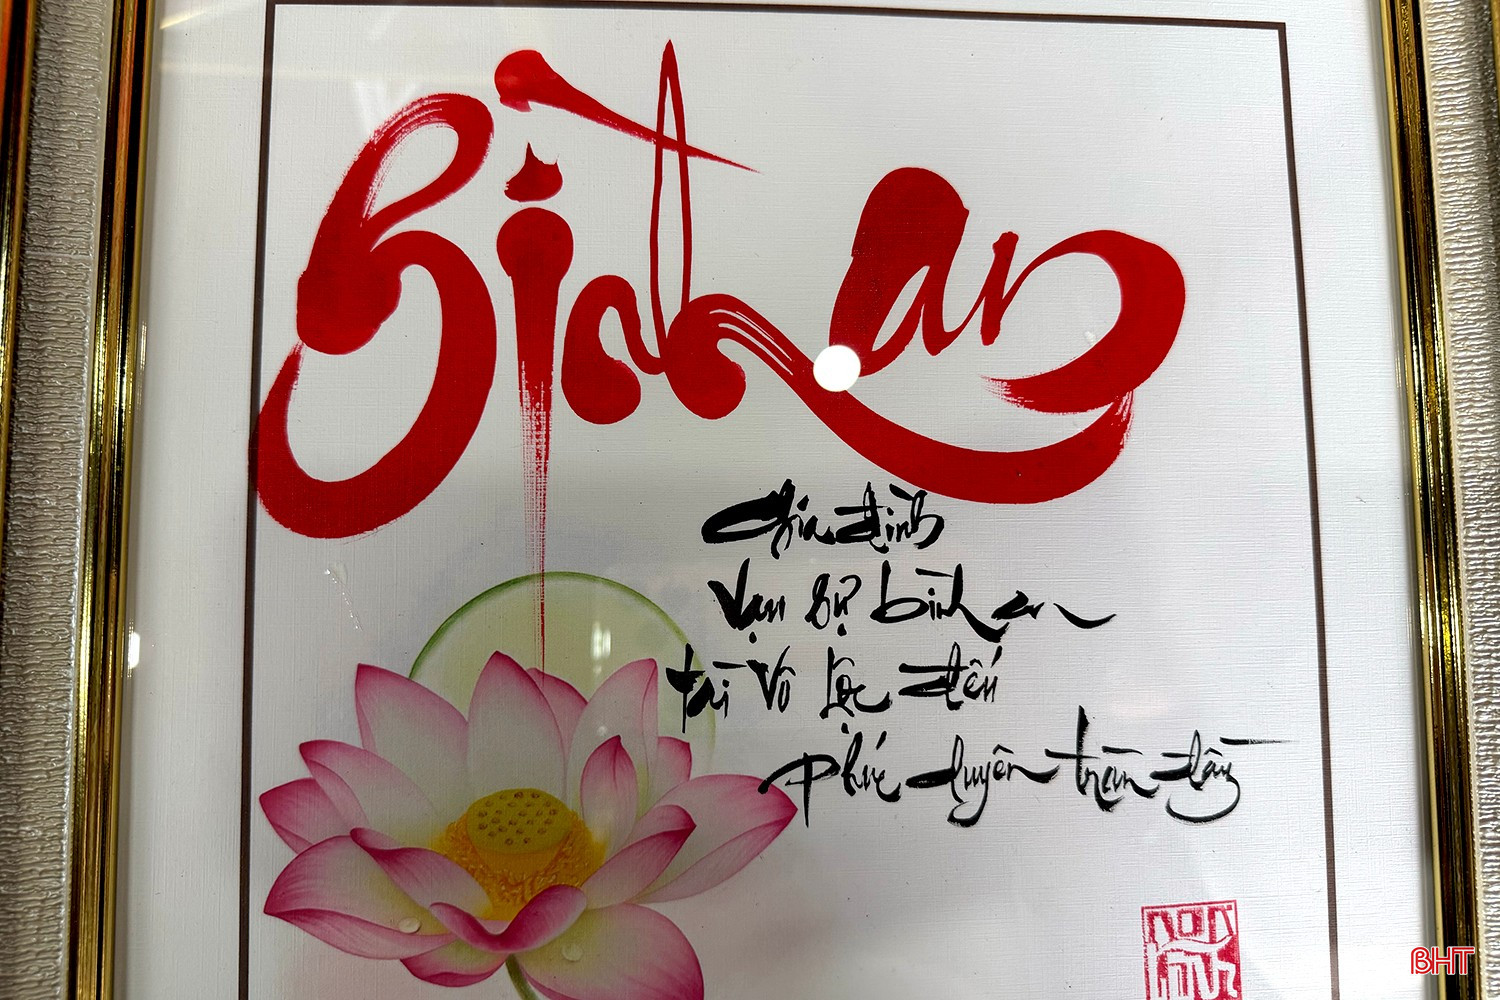 Bình an
Gia đình
vạn sự bình an
tài vô lộc đến
phúc duyên tràn đầy
BHT